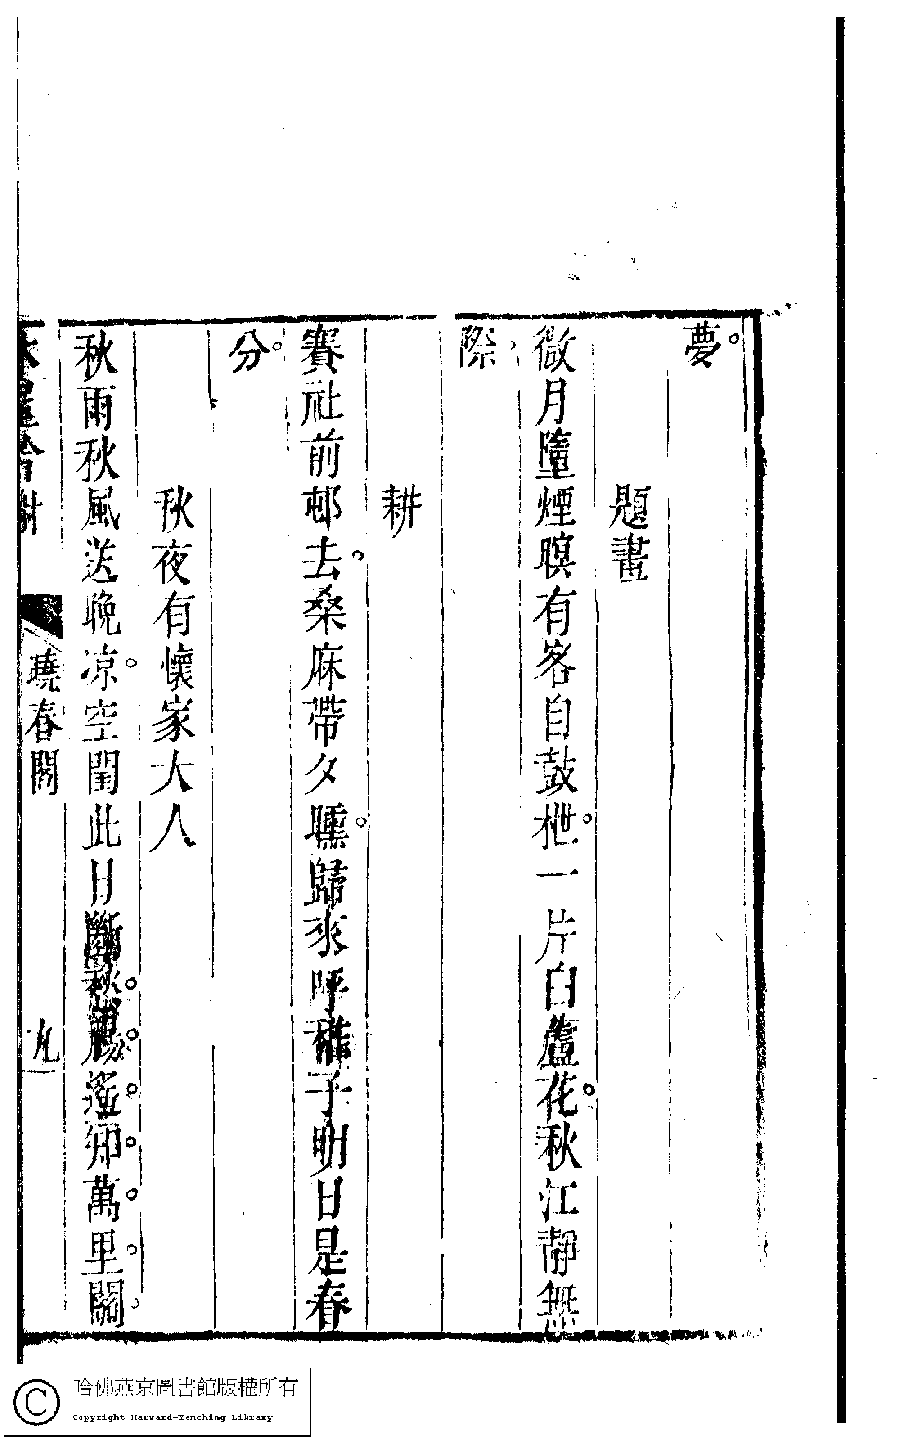 夢。
題畫
微月墮煙暝有客自鼓枻。一片白蘆花。秋江靜無
際
耕
賽社前邨去。桑麻帶夕曛。歸來呼稚子明日是春
分。
秋夜有懷家大人
秋雨秋風送晚凉。空閨此日斷秋腸遙知萬里關
曉春閣
九
哈佛燕京圖書館版權所有
Copyright Harvard-Yenching Library